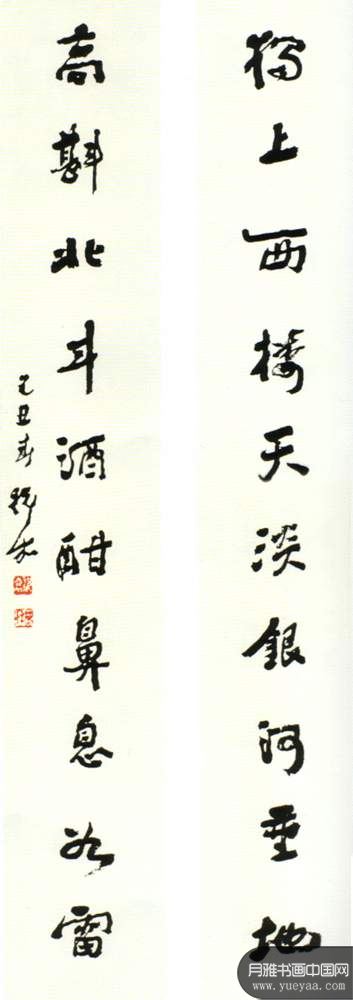 獨上西樓天淡銀河垂地
高斟北斗酒酣鼻息如雷
丑春
月雅书画中国网
www.yueyaa.com